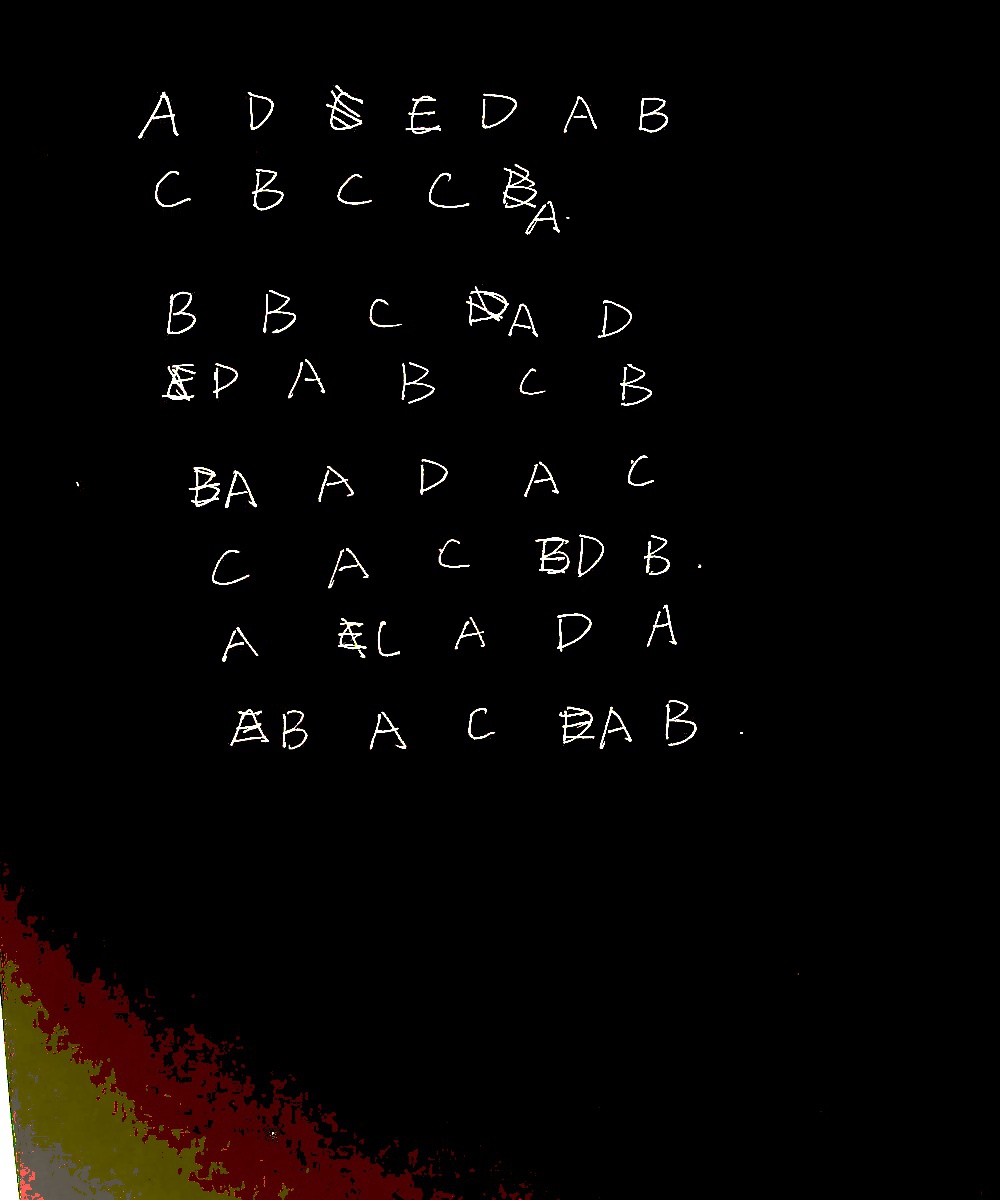 A D E D A B
C B C C A.
B B C A D
D A B C B
A A D A C
C A C D B.
A C A D A
B A C A B.